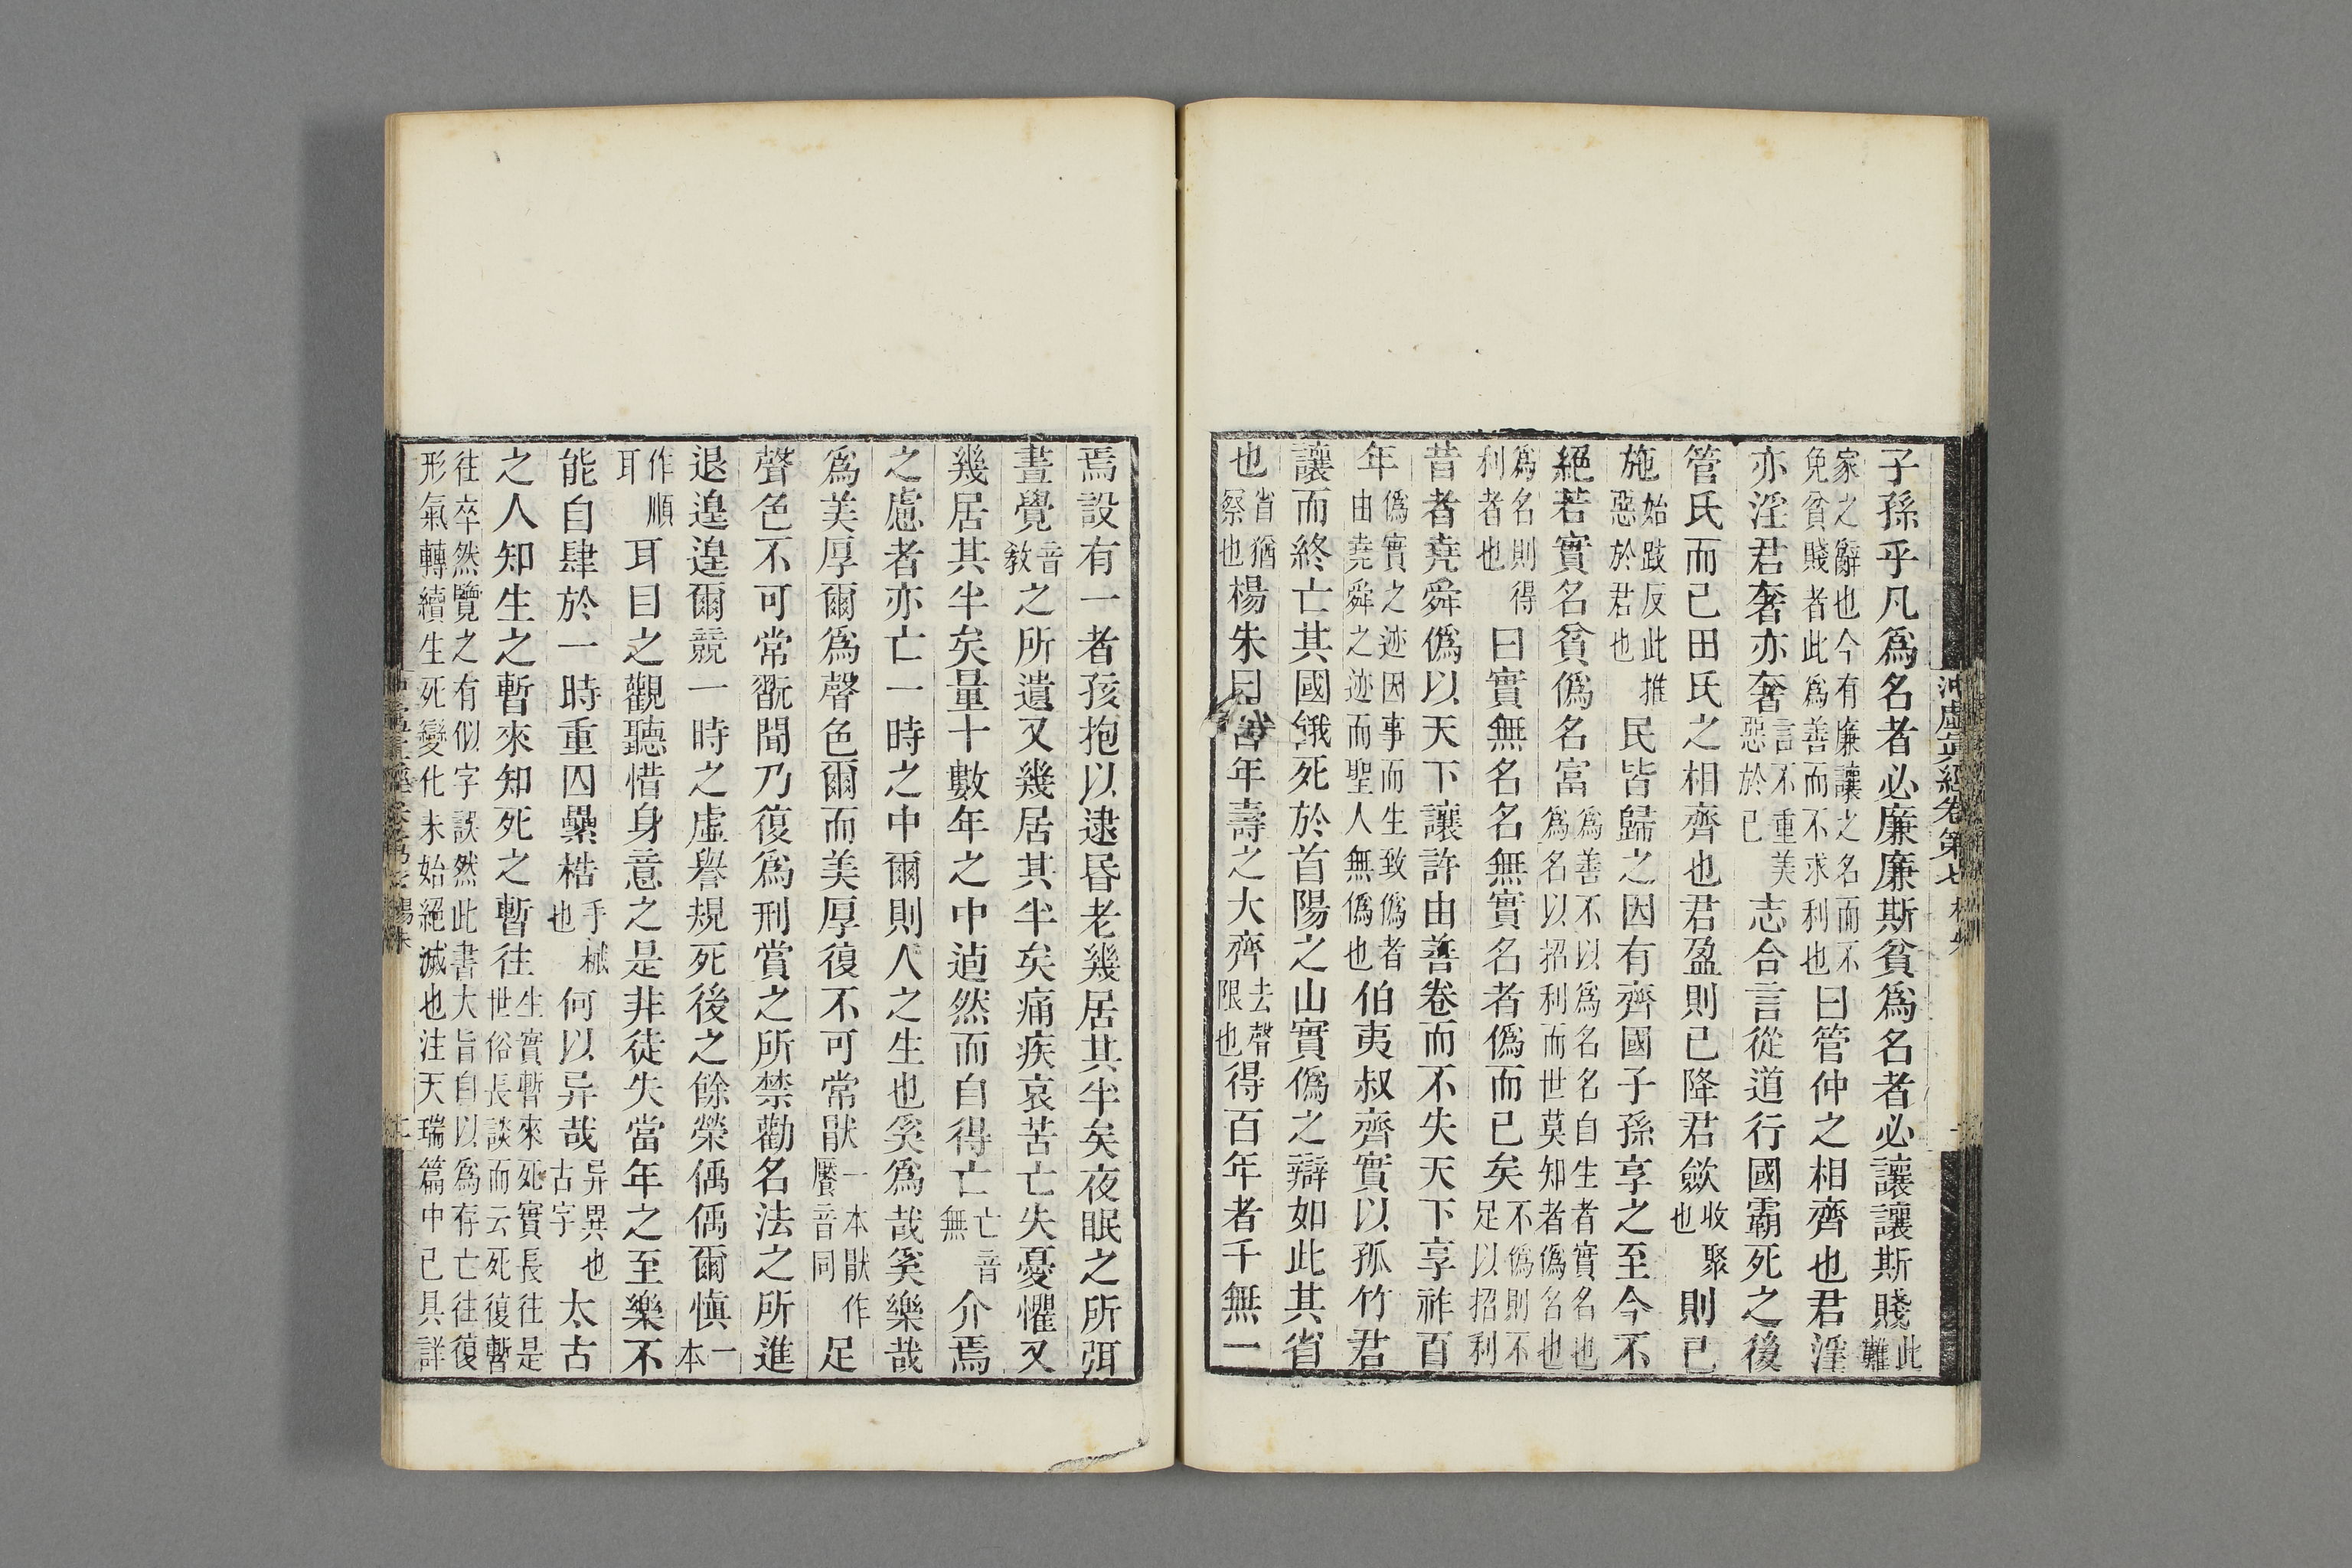 子孫乎凡爲名者必廉廉斯貧爲名者必讓讓斯賤此難
家之辭也今有廉讓之名而不免貧賤者此爲善而不求利也曰管仲之相齊也君淫
亦淫君奢亦奢言不重美惡於已志合言從道行國霸死之後
管氏而已田氏之相齊也君盈則已降君歛收聚也則已
施始豉反此推惡於君也民皆歸之因有齊國子孫享之至今不
絕若實名貧僞名富爲善不以爲名名自生者實名也爲名以招利而世莫知者僞名也
爲名則得利者也曰實無名名無實名者僞而已矣不僞則不足以招利
昔者堯舜僞以天下讓許由善卷而不失天下享祚百
年僞實之迹因事而生致僞者由堯舜之迹而聖人無僞也伯夷叔齊實以孤竹君
讓而終亡其國餓死於首陽之山實僞之辯如此其省
也省猶察也楊朱曰百年壽之大齊去聲限也得百年者千無一
焉設有一者孩抱以逮昬老幾居其半矣夜眠之所弭
晝覺音敎之所遺又幾居其半矣痛疾哀苦亡失憂懼又
幾居其半矣量十數年之中逌然而自得亡亡音無介焉
之慮者亦亡一時之中爾則人之生也奚爲哉奚樂哉
爲美厚爾爲聲色爾而美厚復不可常猒一本猒作饜音同足
聲色不可常翫聞乃復爲刑賞之所禁勸名法之所進
退遑遑爾競一時之虛譽規死後之餘榮偊偊爾愼一本
作順耳耳目之觀聽惜身意之是非徒失當年之至樂不
能自肆於一時重囚纍梏手械也何以异哉异異也古字太古
之人知生之暫來知死之暫往生實暫來死實長往是世俗長談而云死復暫
往卒然覽之有似字誤然此書大旨自以爲存亡往復形氣轉續生死變化未始絕滅也注天瑞篇中已具詳